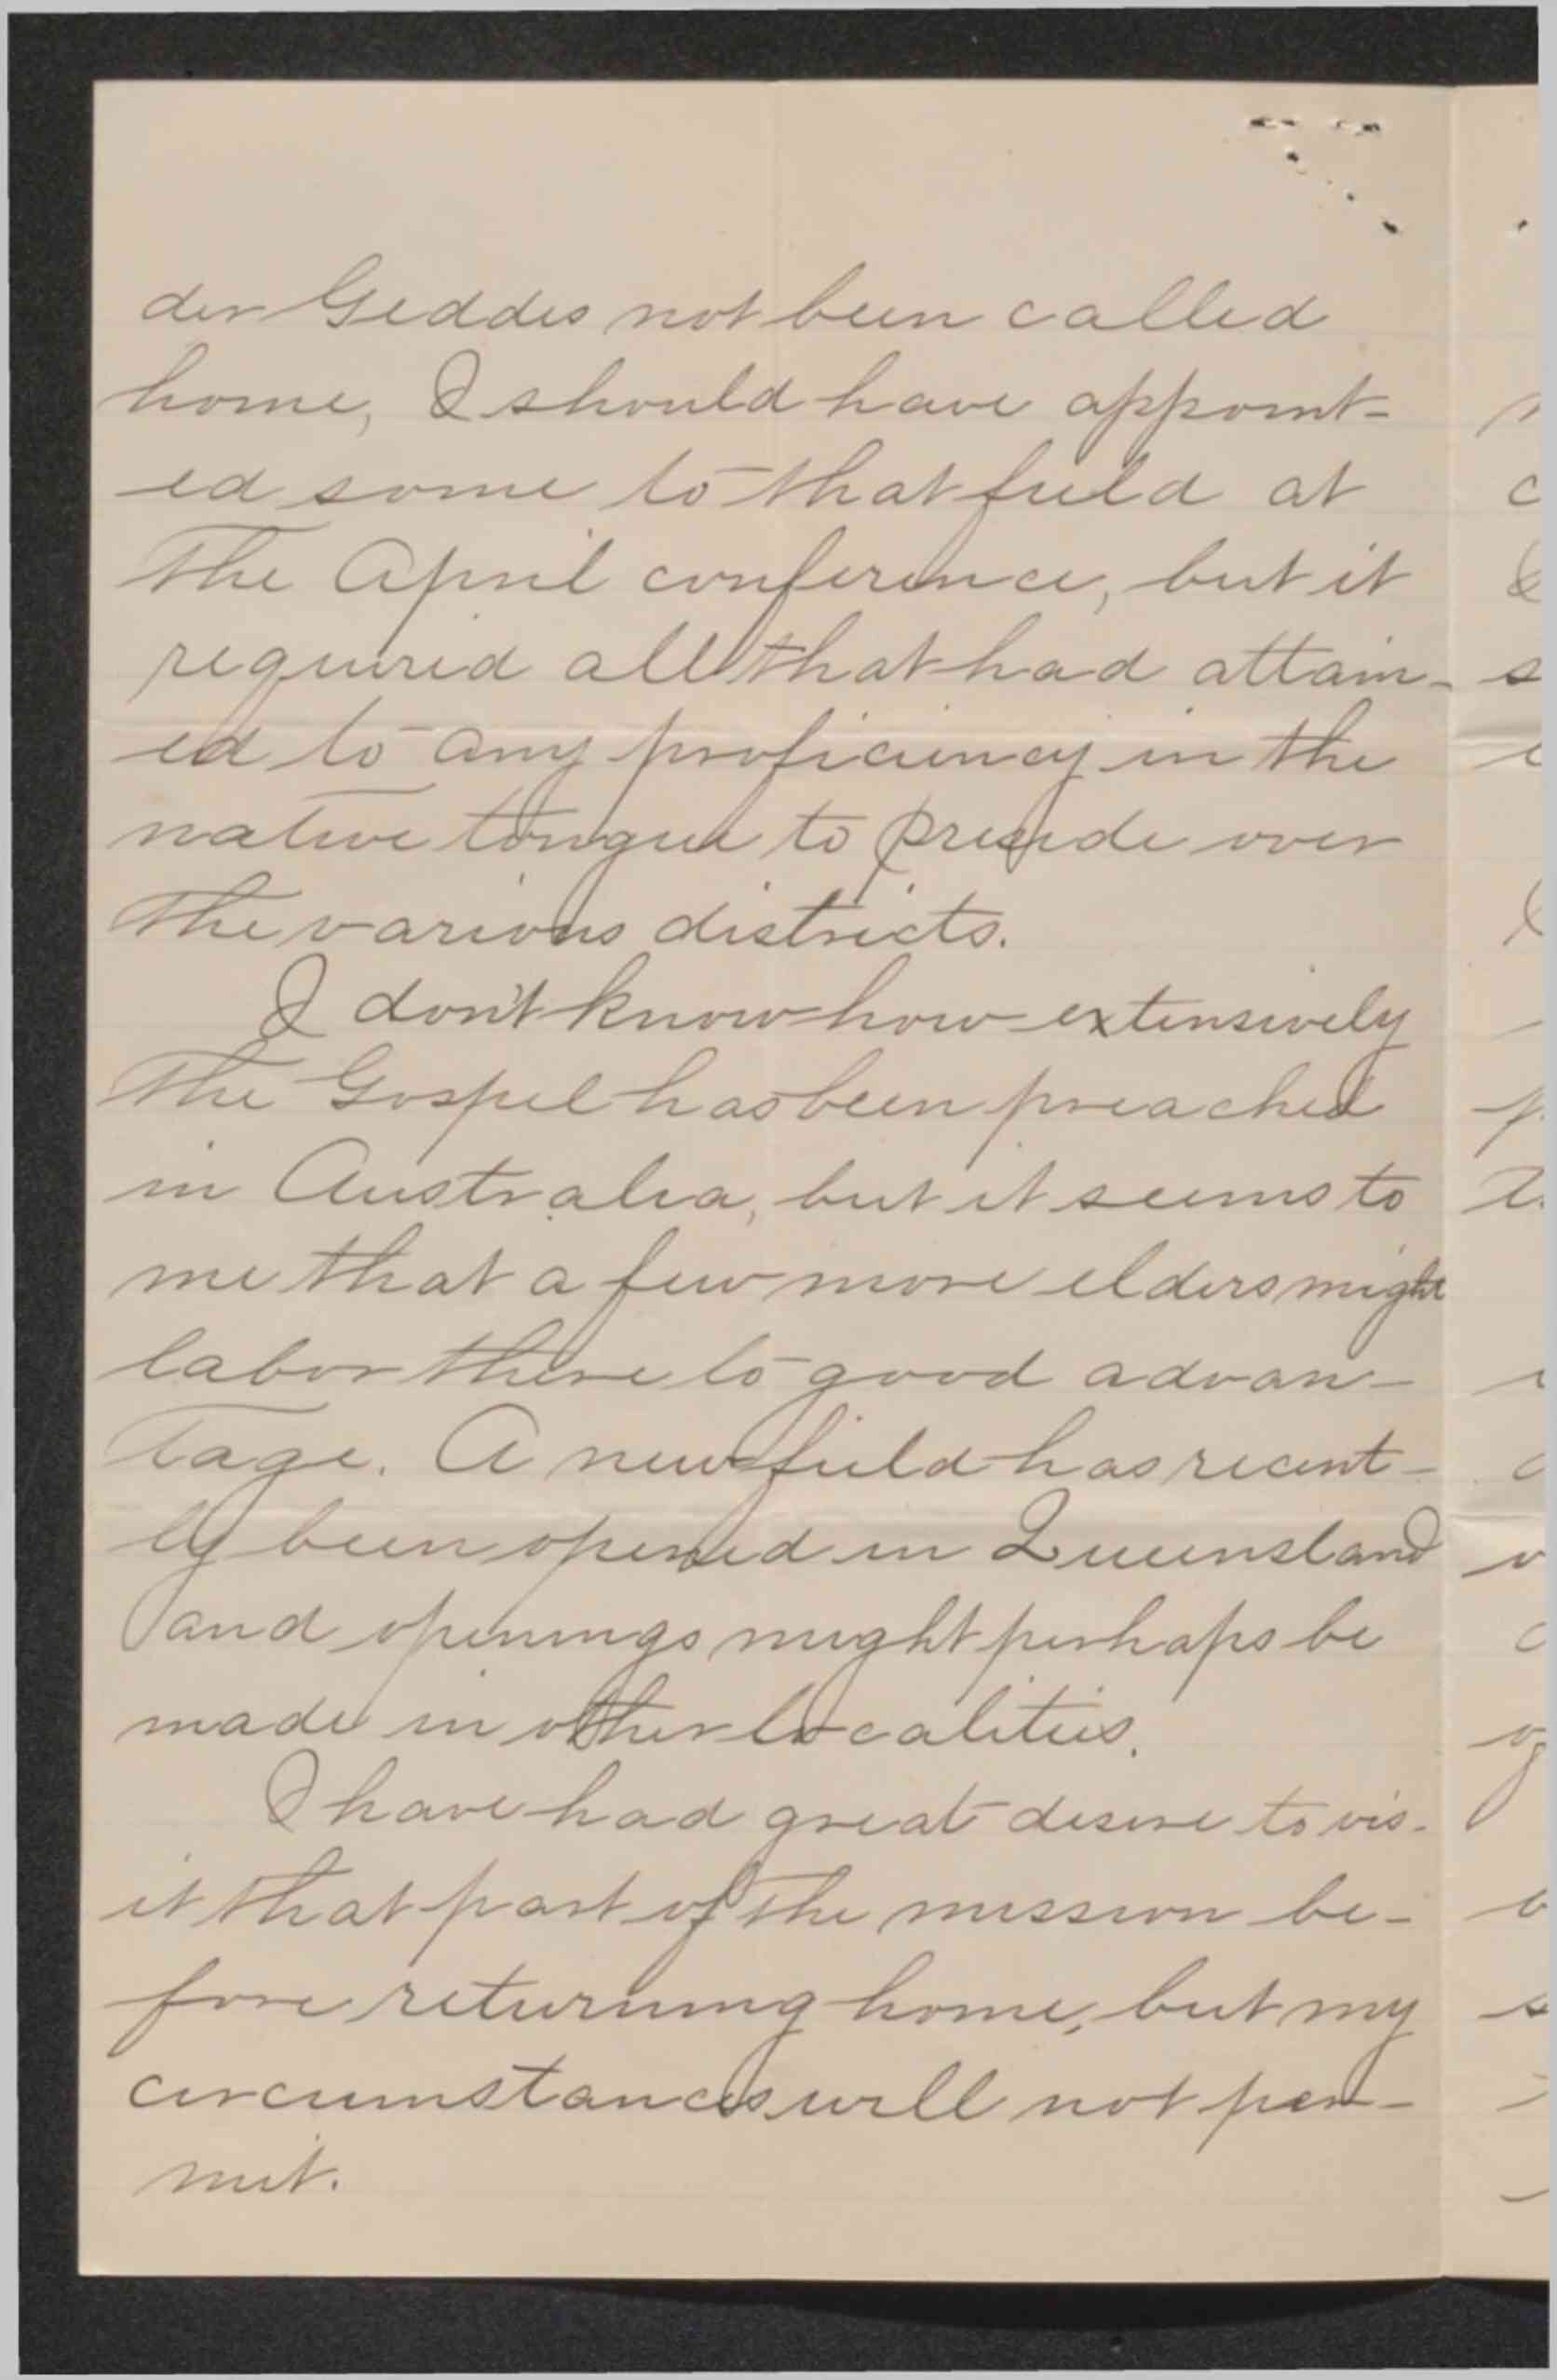 der Geddes not been called
home, I should have appoint-
ed some to that field at
the April conference, but it
required all that had attain-
ed to any proficiency in the
native tongue to preside over
the various districts.
I don't know how extensively
the Gospel has been preached
in Australia, but it seems to
me that a few more elders might
labor there to good advan-
tage. A new field has recent-
ly been opened in Queensland
and openings might perhaps be
made in other localities.
I have had great desire to vis-
it that part of the mission be-
fore returning home, but my
circumstances will not per-
mit.